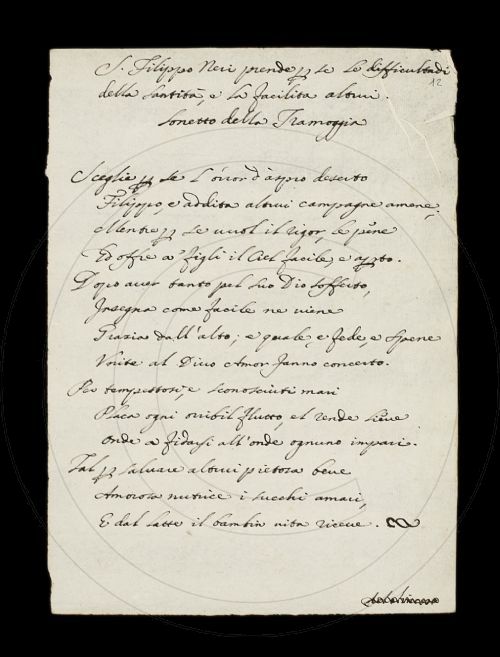 S. Filippo Neri prende p se le difficultadi
12
della Santità, e la facilita altrui.
Sonetto della Tramoggia
Sceglie p se l'orror d'aspro deserto
Filippo, e addita altrui campagne amene;
Mentre p se vuol il rigor, le pene
Ed offre a' figli il Ciel facile, e apto.
Dopo aver tanto pel suo Dio sofferto,
Insegna come facile ne viene
Grazia dall'alto; e quale, e fede, e spene
Unite al Divo Amor fanno concerto.
Per tempestosi, e sconosciuti mari
Placa ogni orribil flutto, el rende lieve
Onde a fidarsi all'onde ognuno impari.
Tal p salvare altrui pietosa beve
Amorosa nutrice i succhi amari,
E dal latte il bambin vita riceve.